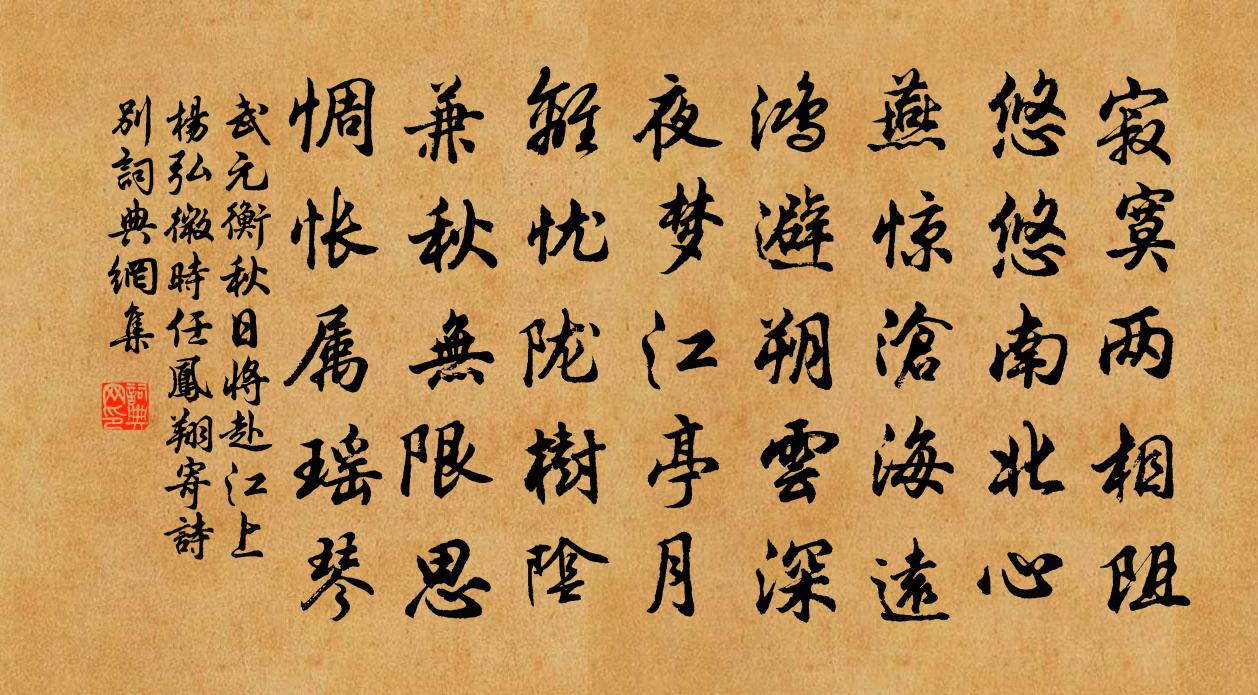 寂寞两相阻
悠悠南北心
燕惊滄海遠
鴻避朔雲深
夜梦江亭月
離忧陇樹陰
兼秋無限思
惆怅属瑶琴
武元衡秋日將赴江上
楊弘微時任鳳翔寄詩
別詞典網集
詞典网印